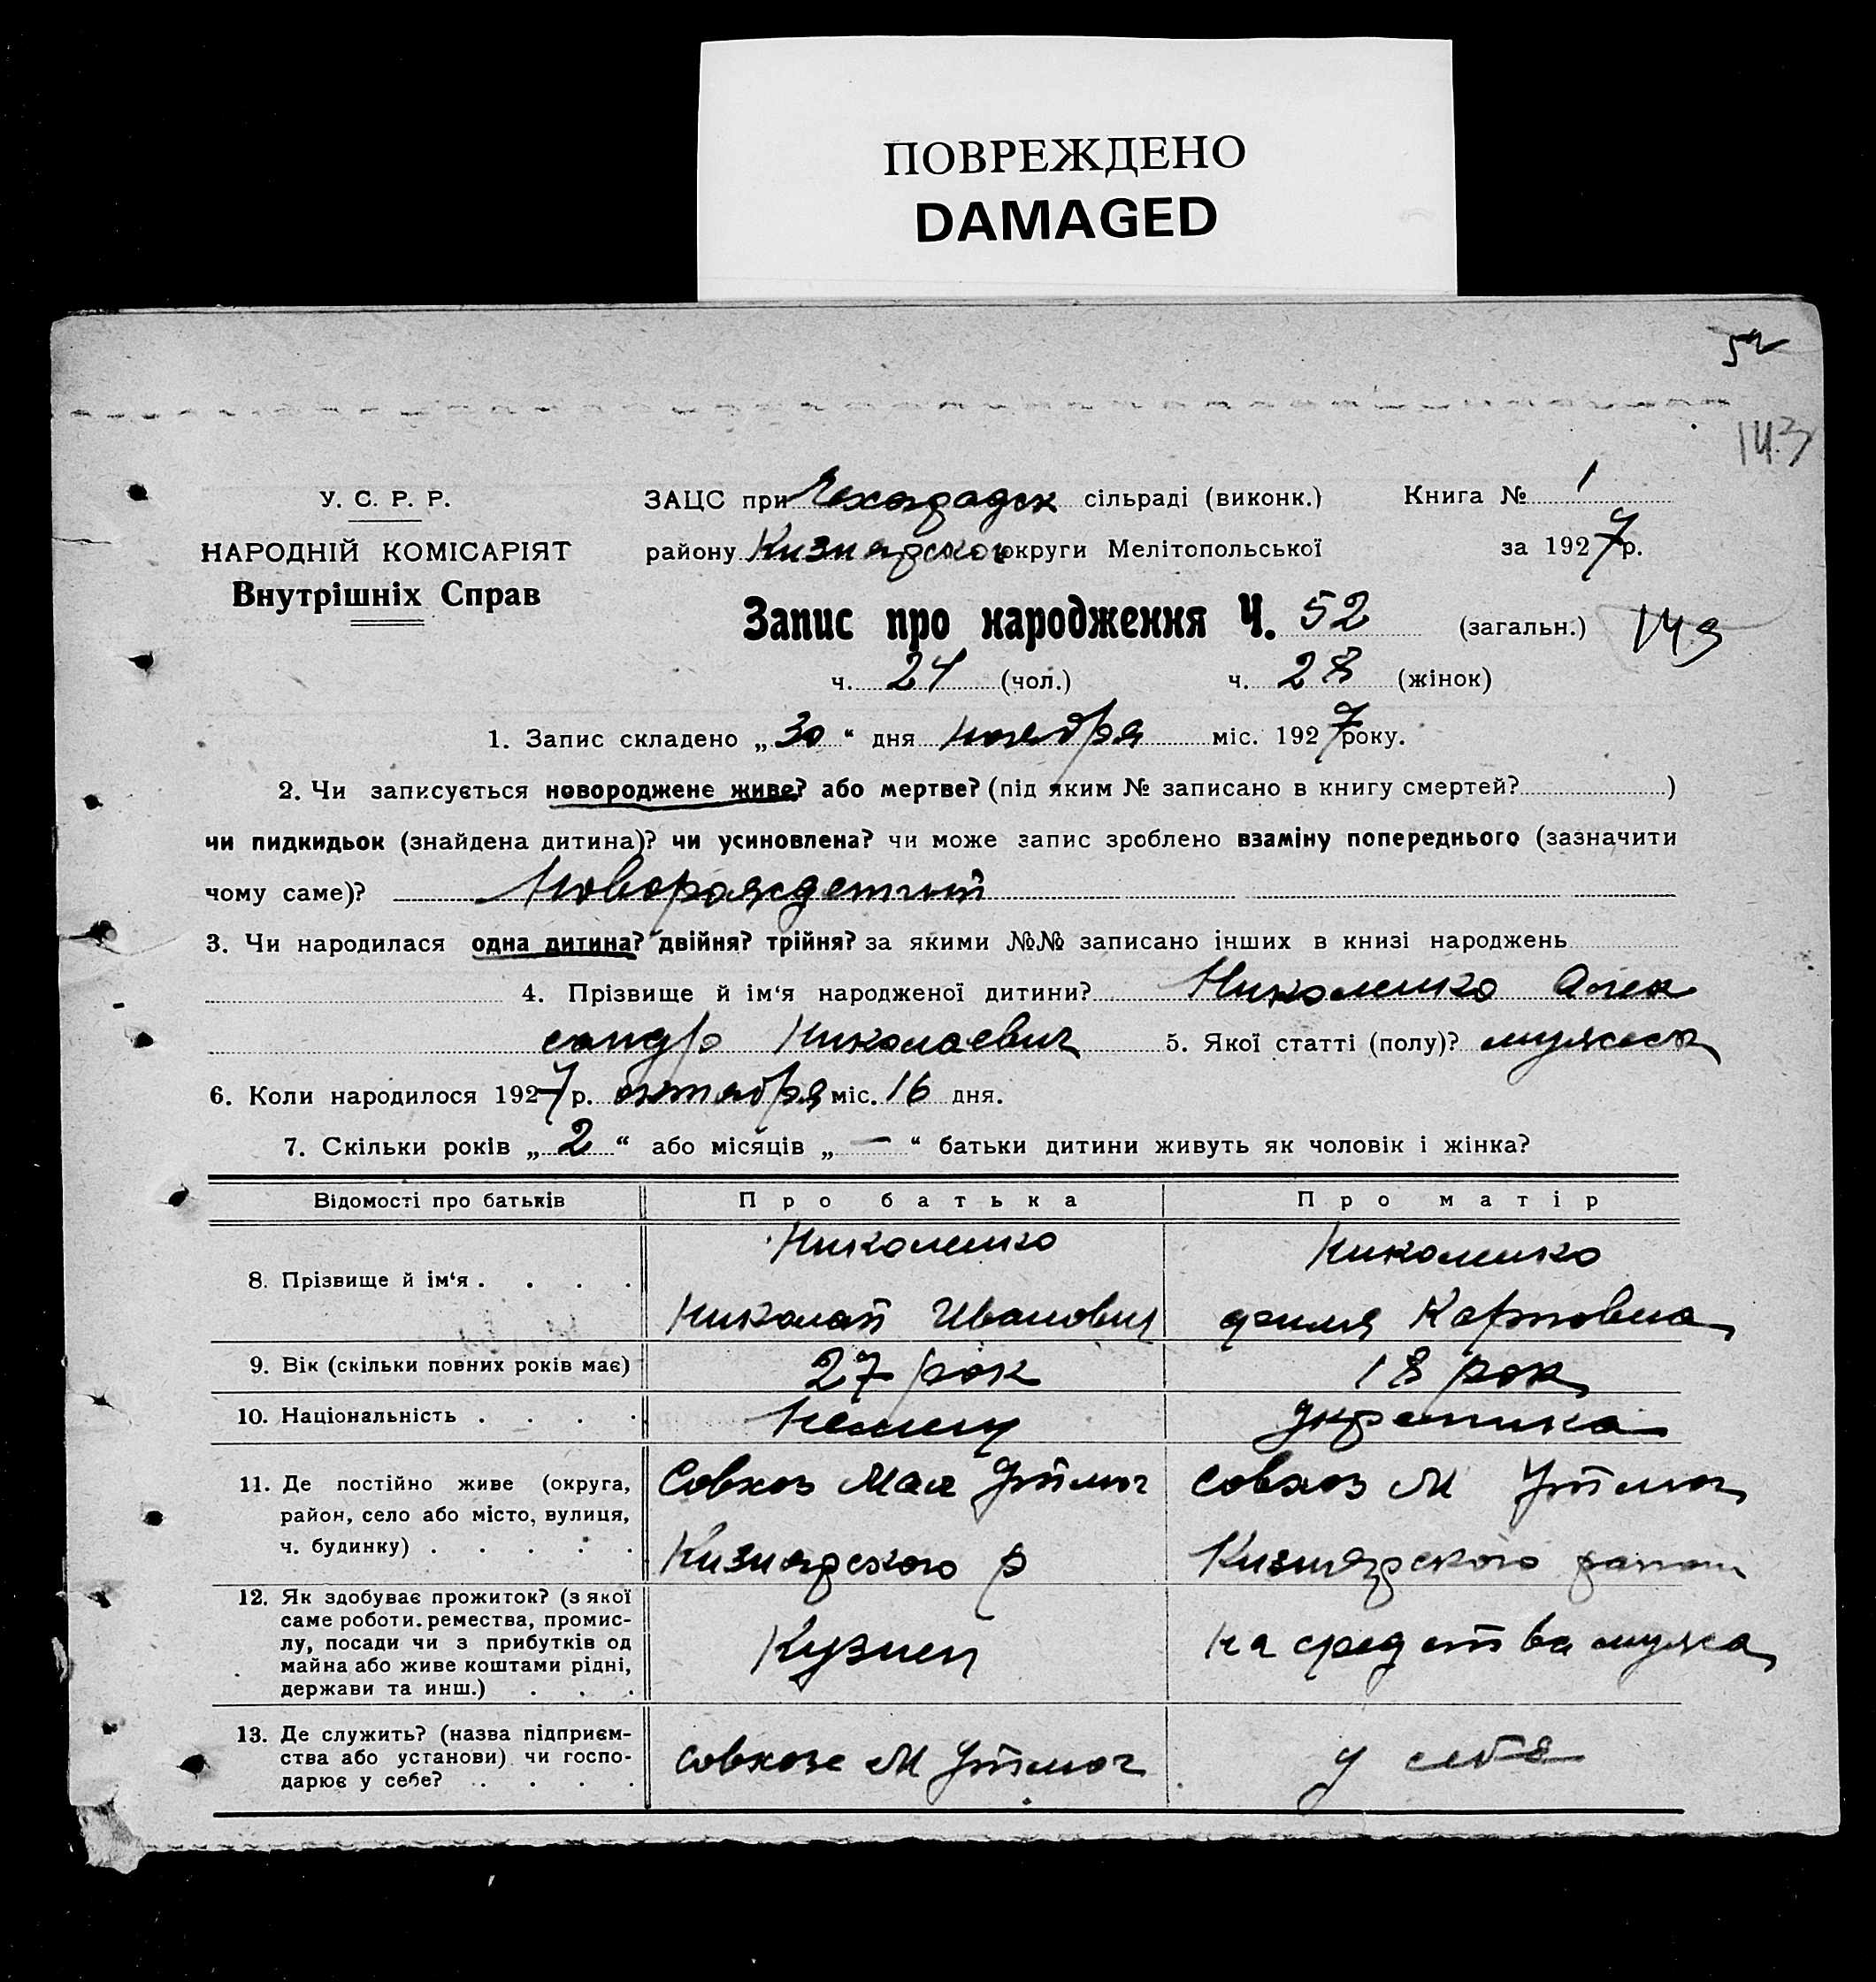 ПОВРЕЖДЕНО
DAMAGED
52
143
У. С. Р. Р.
НАРОДНІЙ КОМІСАРІЯТ
Внутрішніх Справ
ЗАЦС при Чехоградск сільраді (виконк.) Книга № 1
району Кизиярского округи Мелітопольської за 1927 р.
Запис про народження Ч. 52 (загальн.) 143
ч. 24 (чол.) ч. 28 (жінок)
1. Запис складено „30“ дня ноября міс. 1927 року.
2. Чи записується новороджене живе? або мертве? (під яким № записано в книгу смертей? )
чи пидкидьок (знайдена дитина)? чи усиновлена? чи може запис зроблено взаміну попереднього (зазначити
чому саме)? Новорожденный
3. Чи народилася одна дитина? двійня? трійня? за якими №№ записано інших в книзі народжень
4. Прізвище й ім‘я народженої дитини? Николенко Алек
сандр Николаевич 5. Якої статті (полу)? мужеск
6. Коли народилося 1927 р. октября міс. 16 дня.
7. Скільки років „2“ або місяців „—“ батьки дитини живуть як чоловік і жінка?
Відомості про батьків Про батька Про матір
8. Прізвище й ім‘я . . . . Николенко Николай Иванович Николенко Карповна
9. Вік (скільки повних років має) 27 рок 18 рок
10. Національність . . . . Украинка
11. Де постійно живе (округа, район, село або місто, вулиця, ч. будинку) . . . . . Совхоз Мал Утлюг Кизиярского р Совхоз М Утлюг Кизиярского район
12. Як здобуває прожиток? (з якої саме роботи. ремества, промислу, посади чи з прибутків од майна або живе коштами рідні, держави та инш.) . . . Кузнец на средства мужа
13. Де служить? (назва підприємства або установи) чи господарює у себе? . . . . . Совхозе М Утлюг у себя